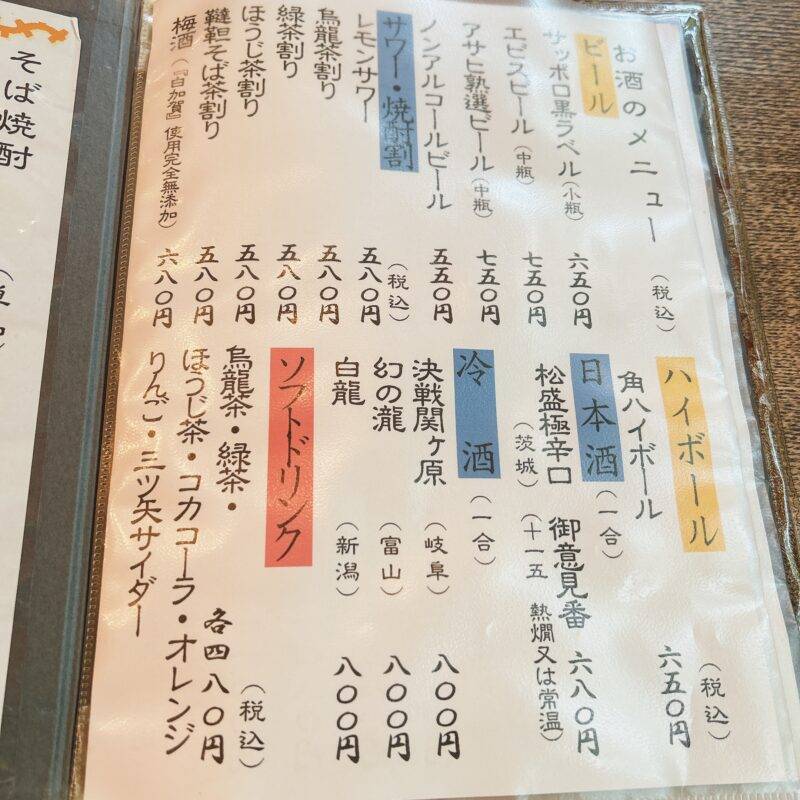 お酒のメニュー (税込)
ビール
サッポロ黒ラベル(小瓶) 六五〇円
エビスビール(中瓶) 七五〇円
アサヒ熟選ビール(中瓶) 七五〇円
ノンアルコールビール 五五〇円
サワー・焼酎割 (税込)
レモンサワー 五八〇円
烏龍茶割り 五八〇円
緑茶割り 五八〇円
ほうじ茶割り 五八〇円
韃靼そば茶割り 五八〇円
梅酒(『白加賀』使用完全無添加) 六八〇円
ハイボール (税込)
角ハイボール 六五〇円
日本酒(一合)
松盛極辛口 御意見番 六八〇円
(茨城) (十一五 熱燗又は常温)
冷酒(一合)
決戦関ヶ原(岐阜) 八〇〇円
幻の瀧(富山) 八〇〇円
白龍(新潟) 八〇〇円
ソフトドリンク (税込)
烏龍茶・緑茶・ 各四八〇円
ほうじ茶・コカコーラ・オレンジ
りんご・三ツ矢サイダー
そば焼酎